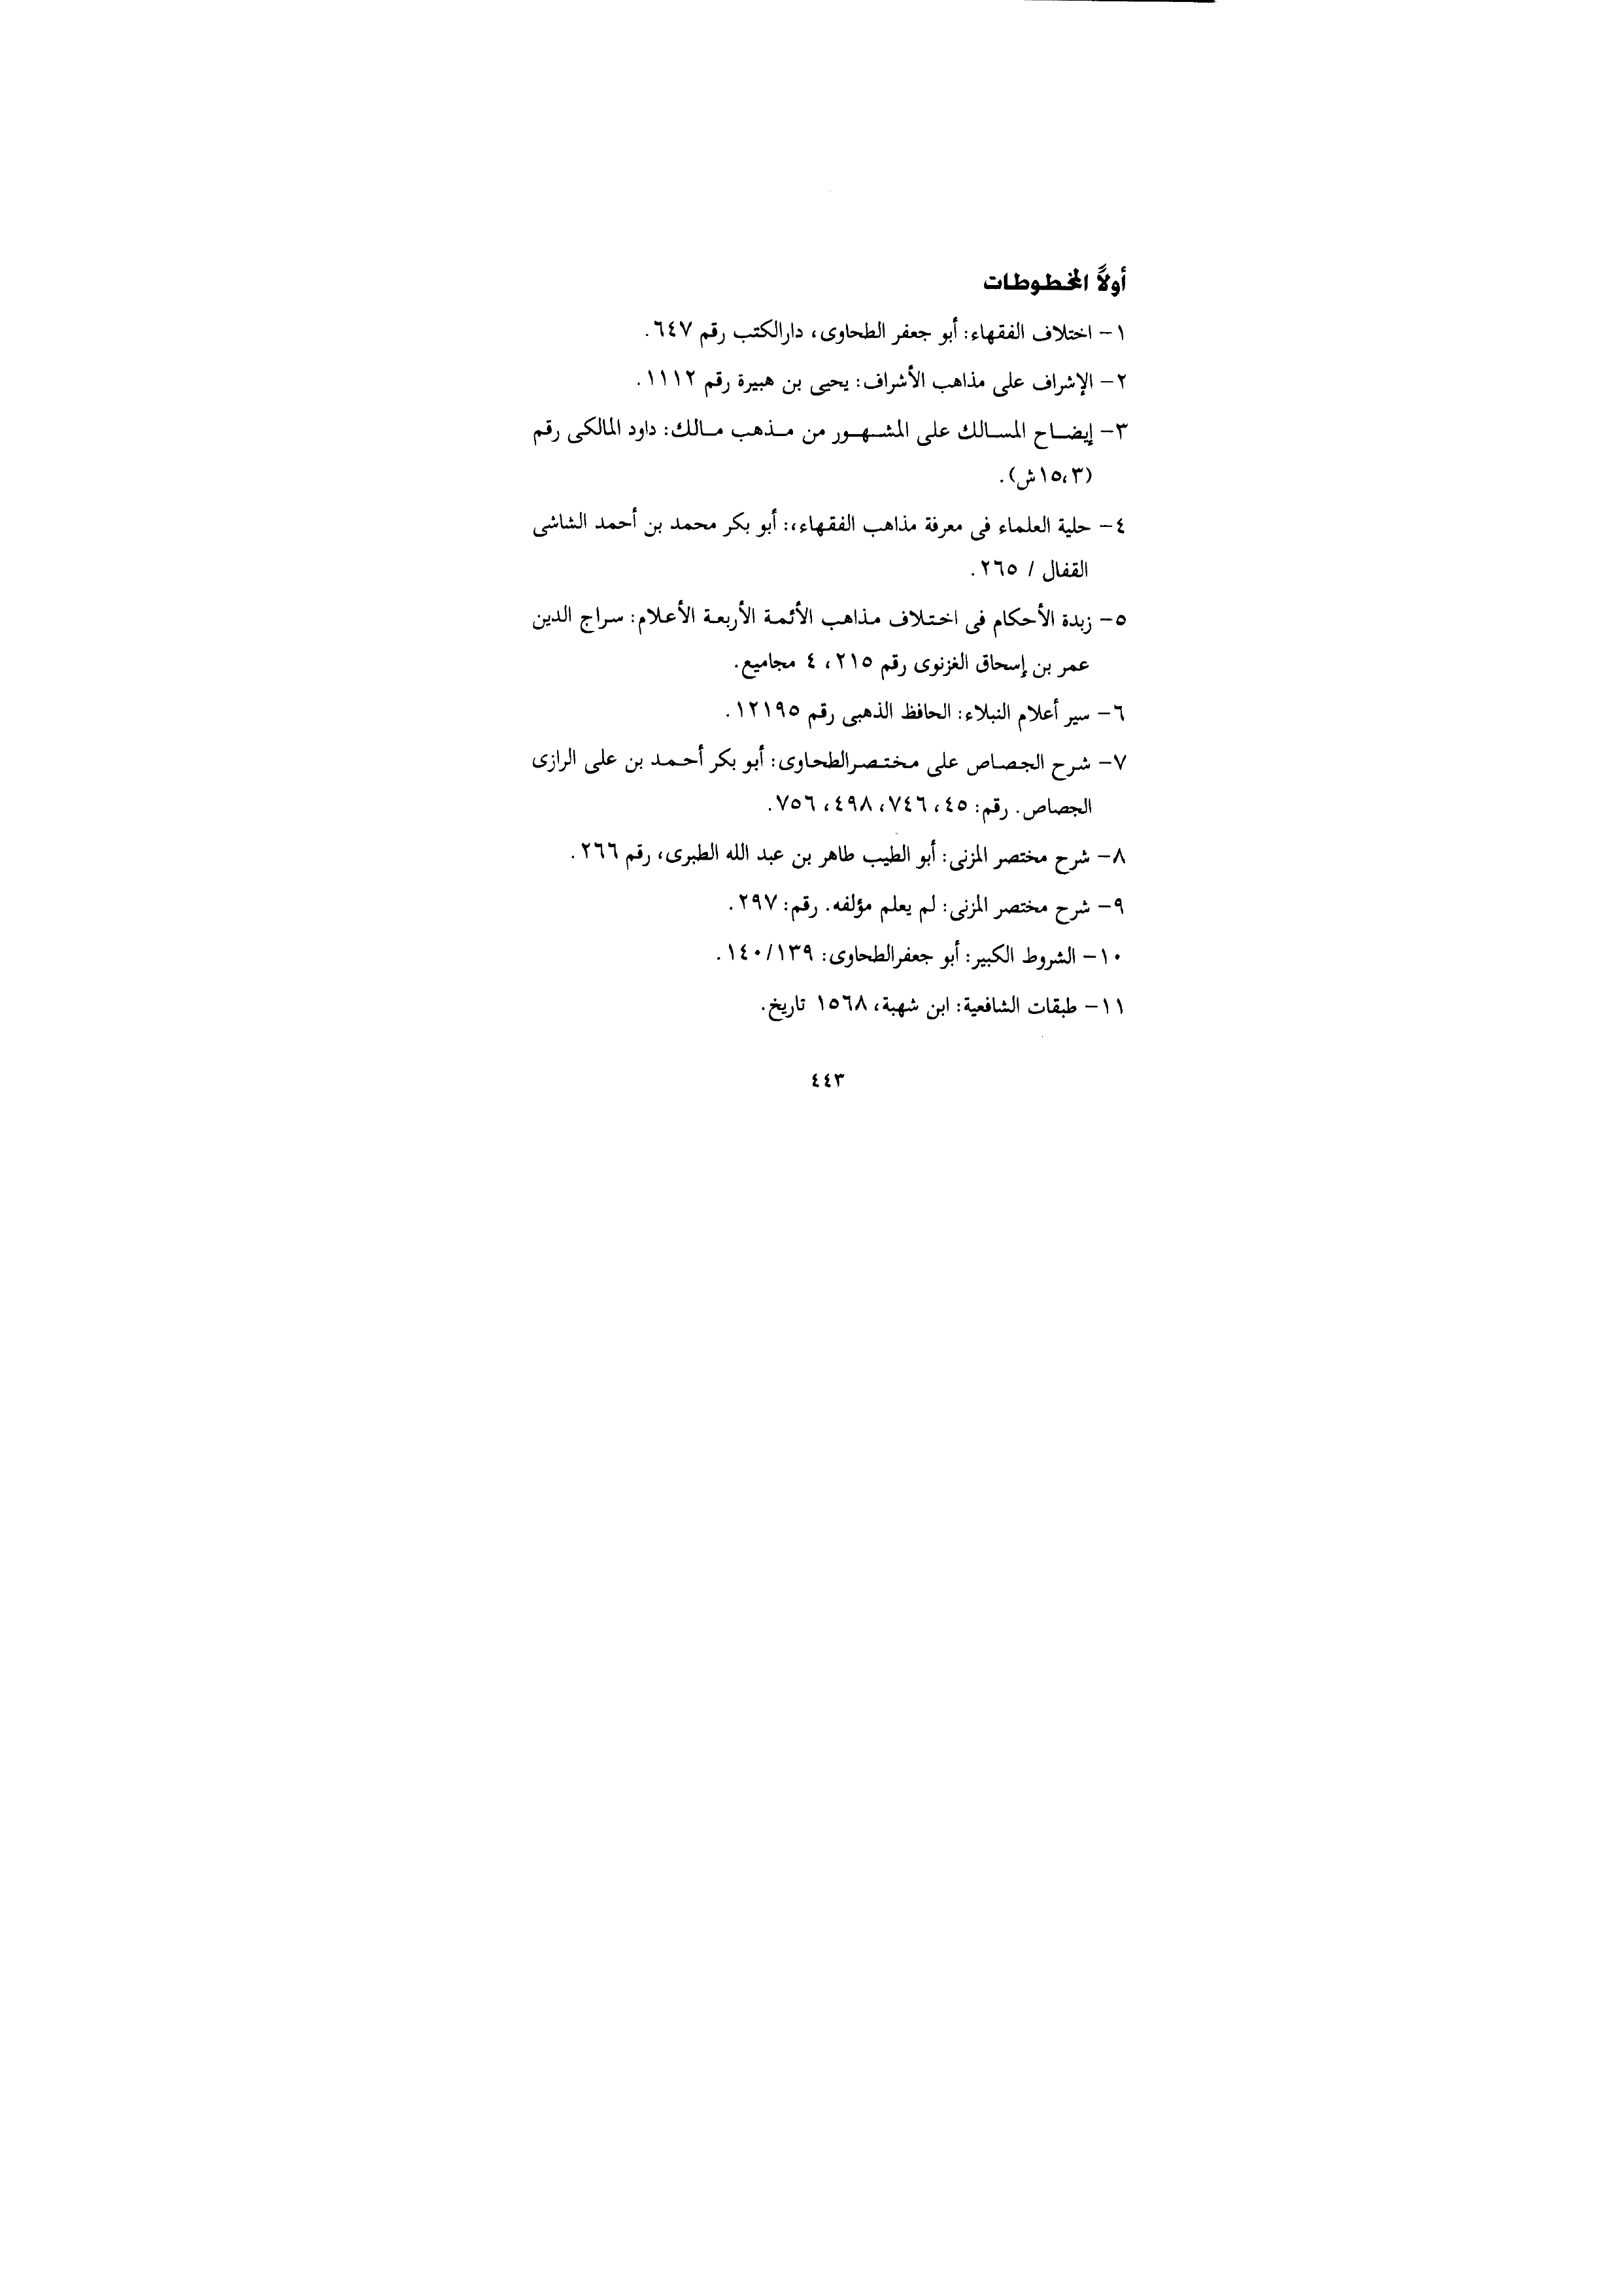 أولاً المخطوطات
١- اختلاف الفقهاء: أبو جعفر الطحاوى، دارالكتب رقم ٦٤٧.
٢- الإشراف على مذاهب الأشراف: يحيى بن هبيرة رقم ١١١٢.
٣- إيضاح المسالك على المشهور من مذهب مالك: داود المالكى رقم
(١٥،٣ش).
٤- حلية العلماء فى معرفة مذاهب الفقهاء،: أبو بكر محمد بن أحمد الشاشى
القفال / ٢٦٥.
٥- زبدة الأحكام فى اختلاف مذاهب الأئمة الأربعة الأعلام: سراج الدين
عمر بن إسحاق الغزنوى رقم ٢١٥، ٤ مجاميع.
٦- سير أعلام النبلاء: الحافظ الذهبى رقم ١٢١٩٥.
٧- شرح الجصاص على مختصرالطحاوى: أبو بكر أحمد بن على الرازى
الجصاص. رقم: ٤٥، ٧٤٦، ٤٩٨، ٧٥٦.
٨- شرح مختصر المزنى: أبو الطيب طاهر بن عبد الله الطبرى، رقم ٢٦٦.
٩- شرح مختصر المزنى: لم يعلم مؤلفه. رقم: ٢٩٧.
١٠- الشروط الكبير: أبو جعفرالطحاوى: ١٤٠/١٣٩.
١١- طبقات الشافعية: ابن شهبة، ١٥٦٨ تاريخ.
٤٤٣